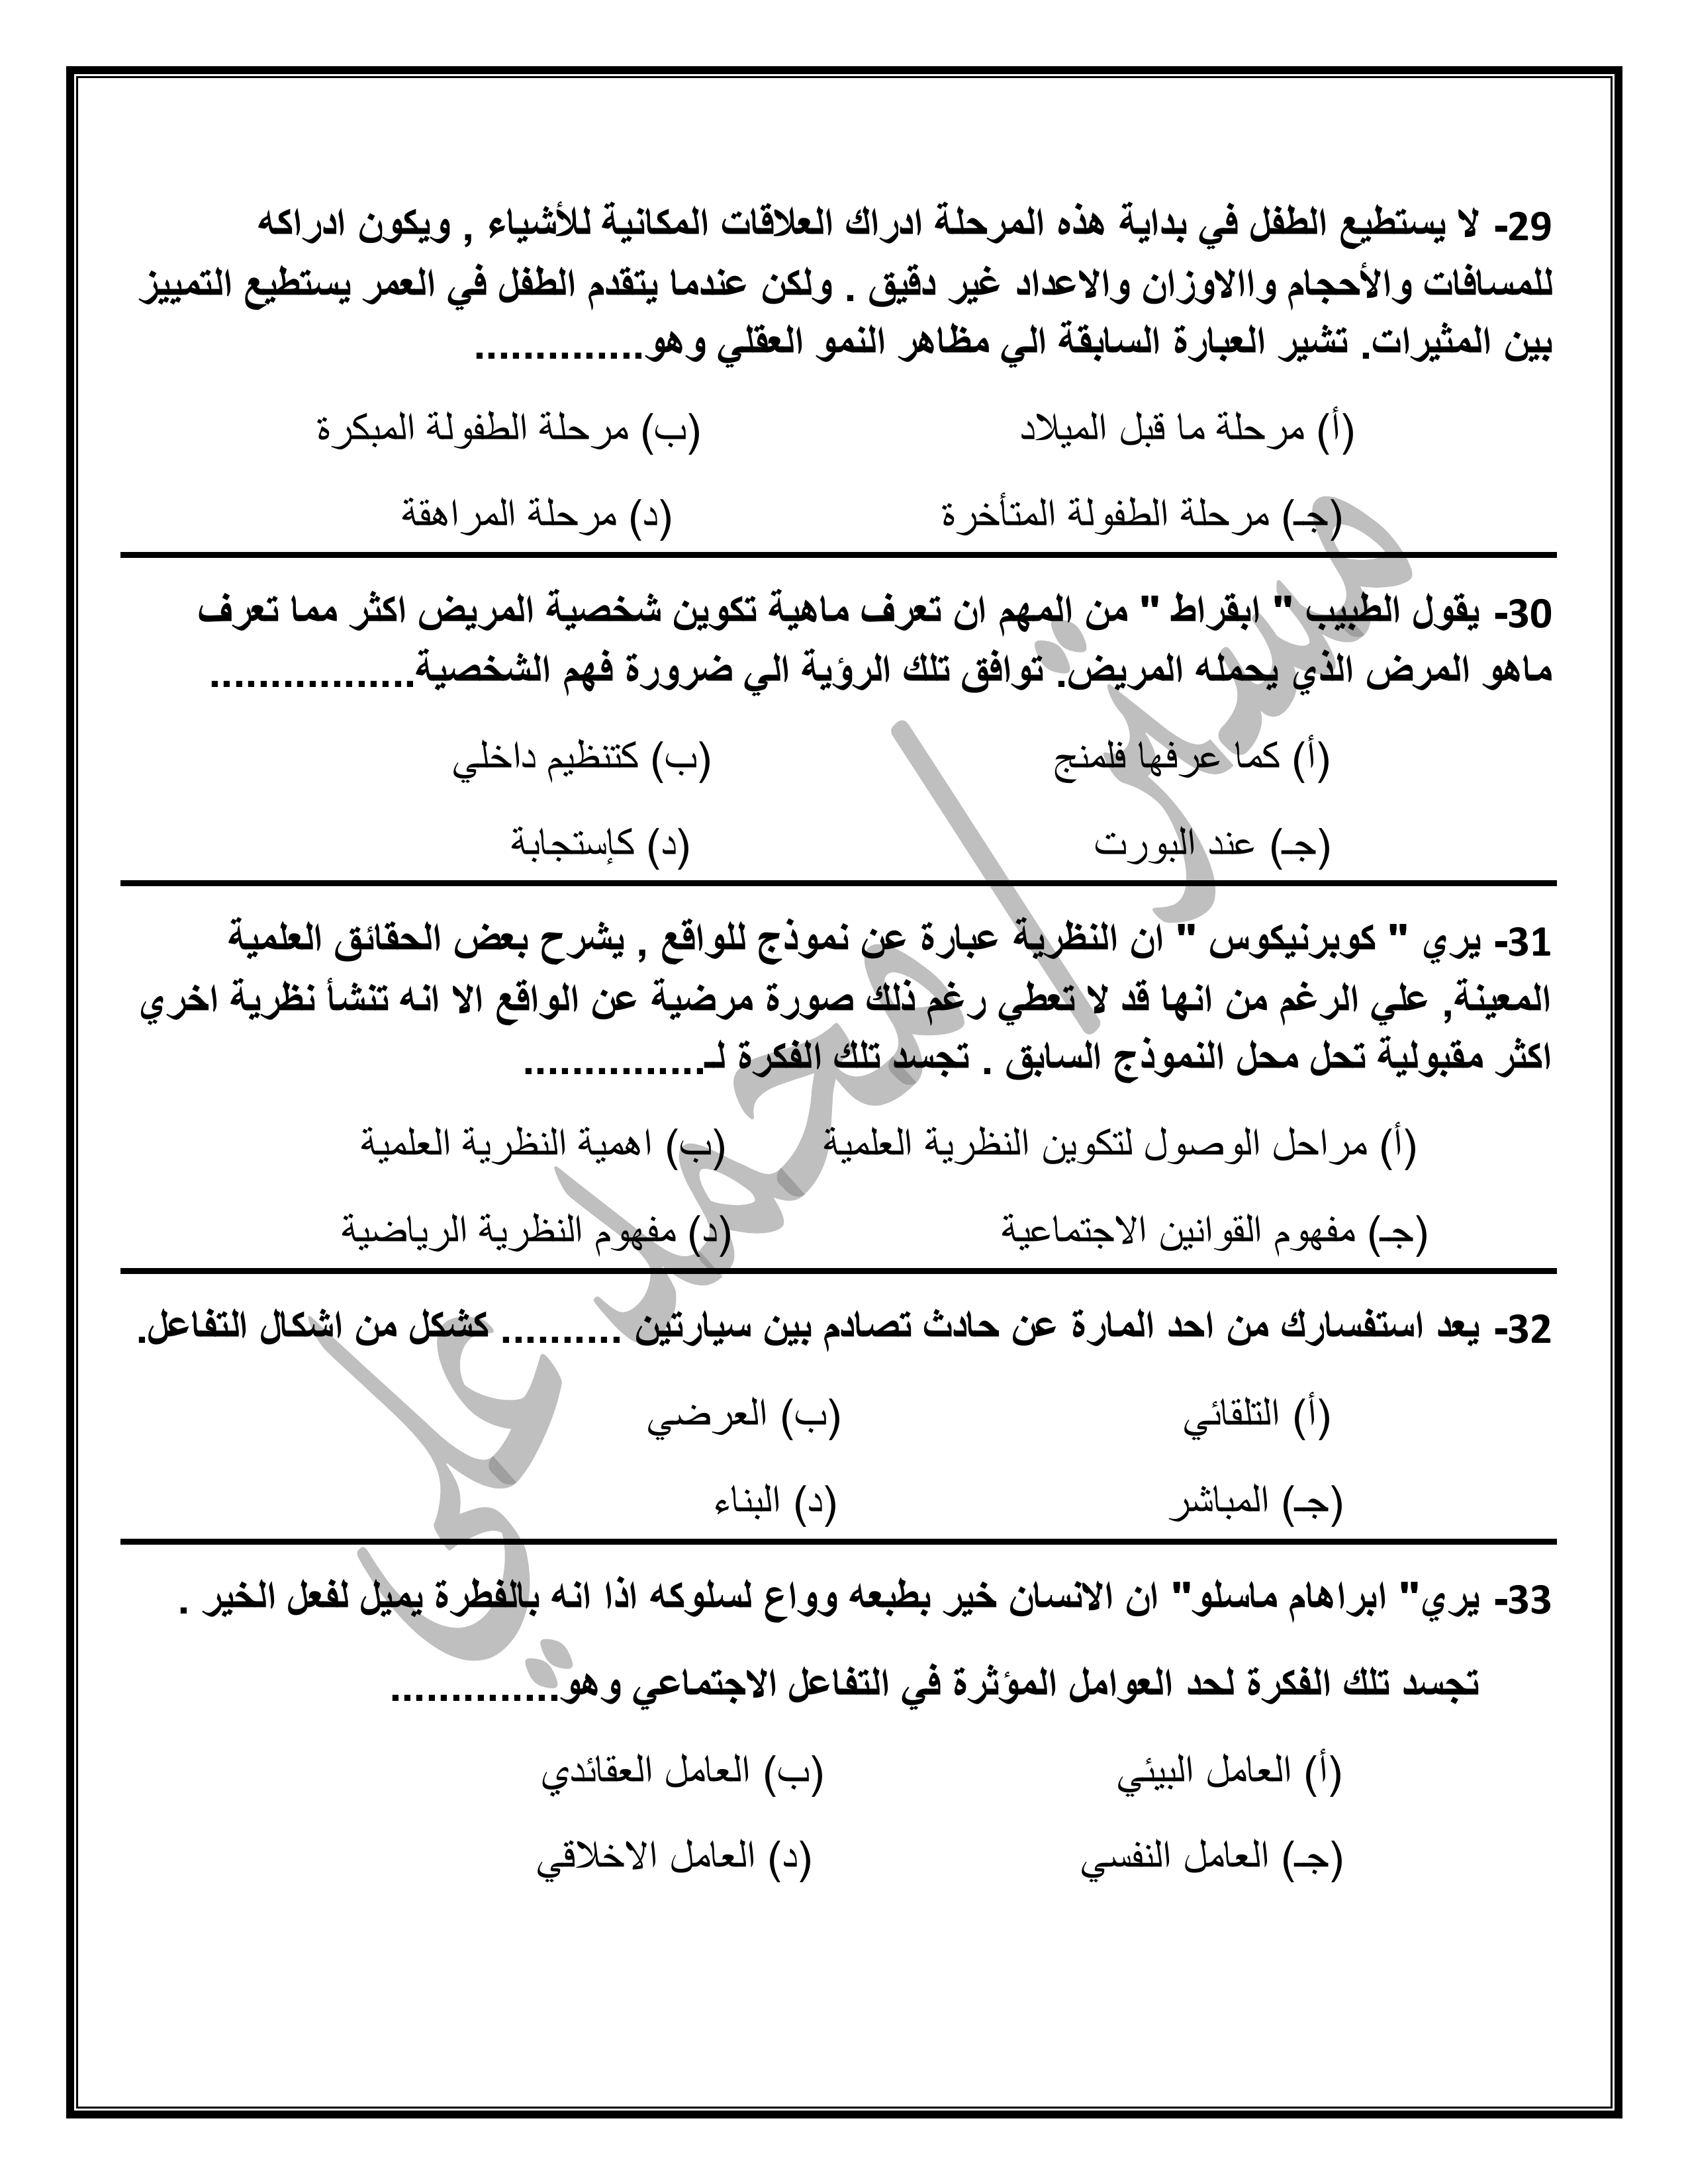 29- لا يستطيع الطفل في بداية هذه المرحلة ادراك العلاقات المكانية للأشياء , ويكون ادراكه
للمسافات والأحجام واالاوزان والاعداد غير دقيق . ولكن عندما يتقدم الطفل في العمر يستطيع التمييز
بين المثيرات. تشير العبارة السابقة الي مظاهر النمو العقلي وهو..............
(أ) مرحلة ما قبل الميلاد (ب) مرحلة الطفولة المبكرة
(جـ) مرحلة الطفولة المتأخرة (د) مرحلة المراهقة
30- يقول الطبيب " ابقراط " من المهم ان تعرف ماهية تكوين شخصية المريض اكثر مما تعرف
ماهو المرض الذي يحمله المريض. توافق تلك الرؤية الي ضرورة فهم الشخصية.................
(أ) كما عرفها فلمنج (ب) كتنظيم داخلي
(جـ) عند البورت (د) كإستجابة
31- يري " كوبرنيكوس " ان النظرية عبارة عن نموذج للواقع , يشرح بعض الحقائق العلمية
المعينة, علي الرغم من انها قد لا تعطي رغم ذلك صورة مرضية عن الواقع الا انه تنشأ نظرية اخري
اكثر مقبولية تحل محل النموذج السابق . تجسد تلك الفكرة لـ...............
(أ) مراحل الوصول لتكوين النظرية العلمية (ب) اهمية النظرية العلمية
(جـ) مفهوم القوانين الاجتماعية (د) مفهوم النظرية الرياضية
32- يعد استفسارك من احد المارة عن حادث تصادم بين سيارتين .......... كشكل من اشكال التفاعل.
(أ) التلقائي (ب) العرضي
(جـ) المباشر (د) البناء
33- يري" ابراهام ماسلو" ان الانسان خير بطبعه وواع لسلوكه اذا انه بالفطرة يميل لفعل الخير .
تجسد تلك الفكرة لحد العوامل المؤثرة في التفاعل الاجتماعي وهو..............
(أ) العامل البيئي (ب) العامل العقائدي
(جـ) العامل النفسي (د) العامل الاخلاقي
مستر/ محمد علي